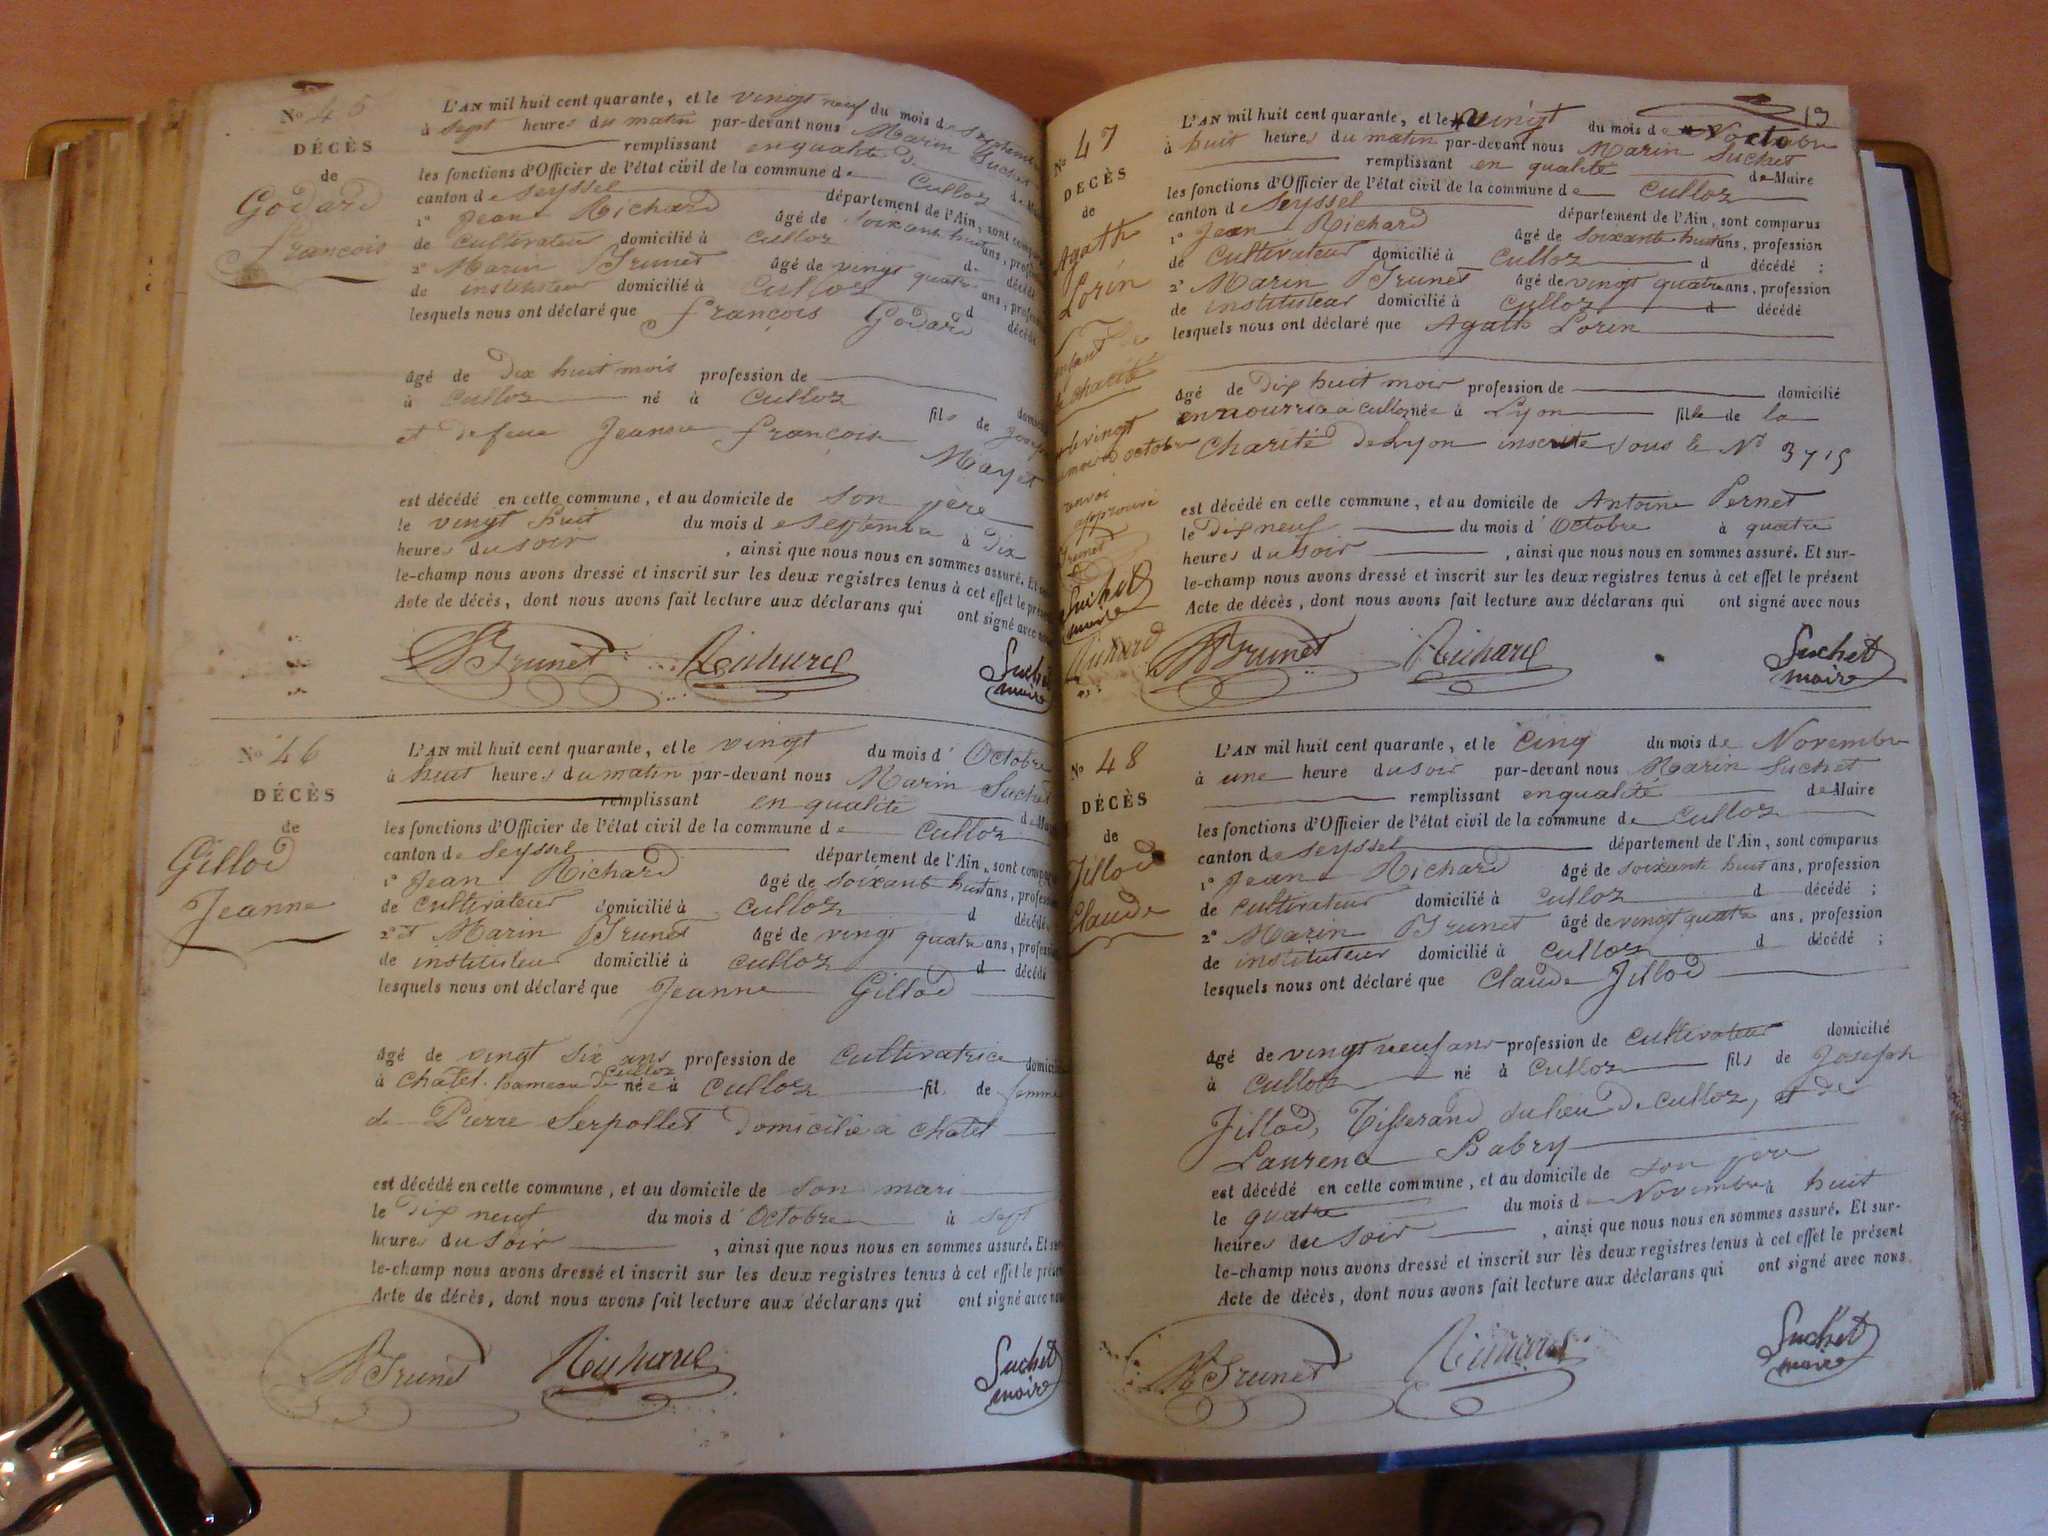 No 45
DÉCÈS
de
Godard
françois
L'AN mil huit cent quarante, et le vingt neuf du mois de septembre
à sept heures du matin par-devant nous Marin Suchet
remplissant en qualité de Maire
les fonctions d'Officier de l'état civil de la commune de Culloz
canton de Seyssel département de l'Ain, sont comparus
1° Jean Richard âgé de soixante huit ans, profession
de cultivateur domicilié à culloz d décédé
2° Marin Brunet âgé de vingt quatre ans, profession
de instituteur domicilié à Culloz d décédé
lesquels nous ont déclaré que françois Godard
âgé de dix huit mois profession de domicilié
à Culloz né à Culloz fils de joseph
et de feue Jeanne françoise Mayet
est décédé en cette commune, et au domicile de son père
le vingt huit du mois de septembre à dix
heures du soir, ainsi que nous nous en sommes assuré. Et sur-
le-champ nous avons dressé et inscrit sur les deux registres tenus à cet effet le présent
Acte de décès, dont nous avons fait lecture aux déclarans qui ont signé avec nous
Brunet Richard Suchet
maire
No 46
DÉCÈS
de
Gillod
Jeanne
L'AN mil huit cent quarante, et le vingt du mois d'Octobre
à huit heures du matin par-devant nous Marin Suchet
remplissant en qualité de Maire
les fonctions d'Officier de l'état civil de la commune de Culloz
canton de Seyssel département de l'Ain, sont comparus
1° Jean Richard âgé de soixante huit ans, profession
de cultivateur domicilié à culloz d décédé
2° et Marin Brunet âgé de vingt quatre ans, profession
de instituteur domicilié à culloz d décédé
lesquels nous ont déclaré que Jeanne Gillod
âgé de vingt six ans profession de cultivatrice domicilié
à chatel hameau de culloz née à culloz fil de femme
de Pierre Serpollet domicilié à chatel
est décédé en cette commune, et au domicile de son mari
le dix neuf du mois d'Octobre à sept
heures du soir, ainsi que nous nous en sommes assuré. Et sur-
le-champ nous avons dressé et inscrit sur les deux registres tenus à cet effet le présent
Acte de décès, dont nous avons fait lecture aux déclarans qui ont signé avec nous
Brunet Richard Suchet
maire
13
No 47
DECÈS
de
Agath
Lorin
enfant de
la charité
le vingt
du mois d'octobre
renvoi
approuvé
Brunet
Suchet
maire
Richard
L'AN mil huit cent quarante, et le vingt du mois de octobre
à huit heures du matin par-devant nous Marin Suchet
remplissant en qualité de Maire
les fonctions d'Officier de l'état civil de la commune de Culloz
canton de Seyssel département de l'Ain, sont comparus
1° Jean Richard âgé de soixante huit ans, profession
de cultivateur domicilié à culloz d décédé ;
2° Marin Brunet âgé de vingt quatre ans, profession
de instituteur domicilié à culloz d décédé
lesquels nous ont déclaré que Agath Lorin
âgé de dix huit mois profession de domicilié
en nourrice à culloz née à Lyon fille de la
charité de Lyon inscrite sous le No 3715
est décédé en cette commune, et au domicile de Antoine Pernet
le dix neuf du mois d'Octobre à quatre
heures du soir, ainsi que nous nous en sommes assuré. Et sur-
le-champ nous avons dressé et inscrit sur les deux registres tenus à cet effet le présent
Acte de décès, dont nous avons fait lecture aux déclarans qui ont signé avec nous
Brunet Richard Suchet
maire
No 48
DÉCÈS
de
Jillod
Claude
L'AN mil huit cent quarante, et le cinq du mois de Novembre
à une heure du soir par-devant nous Marin Suchet
remplissant en qualité de Maire
les fonctions d'Officier de l'état civil de la commune de Culloz
canton de Seyssel département de l'Ain, sont comparus
1° Jean Richard âgé de soixante huit ans, profession
de cultivateur domicilié à culloz d décédé ;
2° Marin Brunet âgé de vingt quatre ans, profession
de instituteur domicilié à culloz d décédé ;
lesquels nous ont déclaré que Claude Jillod
âgé de vingt neuf ans profession de cultivateur domicilié
à culloz né à Culloz fils de Joseph
Jillod, Tisserand du lieu de culloz, et de
Laurence Babry
est décédé en cette commune, et au domicile de son père
le quatre du mois de Novembre à huit
heures du soir, ainsi que nous nous en sommes assuré. Et sur-
le-champ nous avons dressé et inscrit sur les deux registres tenus à cet effet le présent
Acte de décès, dont nous avons fait lecture aux déclarans qui ont signé avec nous
Brunet Richard Suchet
maire